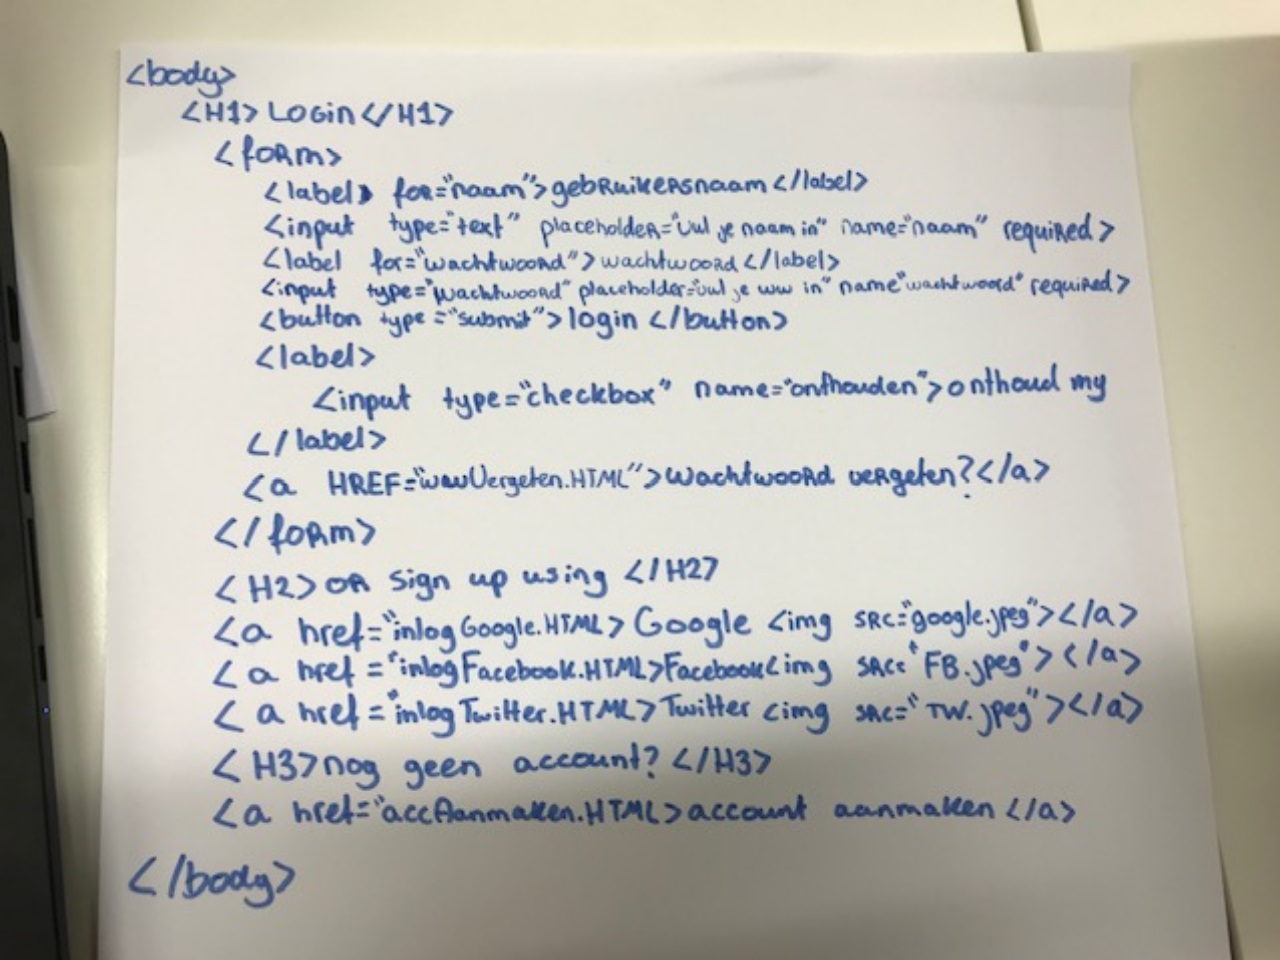 <body>
<H1> Login </H1>
<form>
<label for="naam">gebruikersnaam </label>
<input type="text" placeholder="vul je naam in" name="naam" required >
<label for="wachtwoord"> wachtwoord </label>
<input type="wachtwoord" placeholder="vul je ww in" name"wachtwoord" required>
<button type ="submit"> login </button>
<label>
<input type="checkbox" name="onthouden">onthoud my
</label>
<a HREF="wwVergeten.HTML">wachtwoord vergeten?</a>
</form>
<H2> or sign up using </H2>
<a href="inlogGoogle.HTML> Google <img src="google.jpeg"></a>
<a href ="inlogFacebook.HTML>Facebook<img src="FB.jpeg"></a>
<a href ="inlogTwitter.HTML> Twitter <img src="TW.jpeg"></a>
<H3>nog geen account? </H3>
<a href="accAanmaken.HTML>account aanmaken </a>
</body>